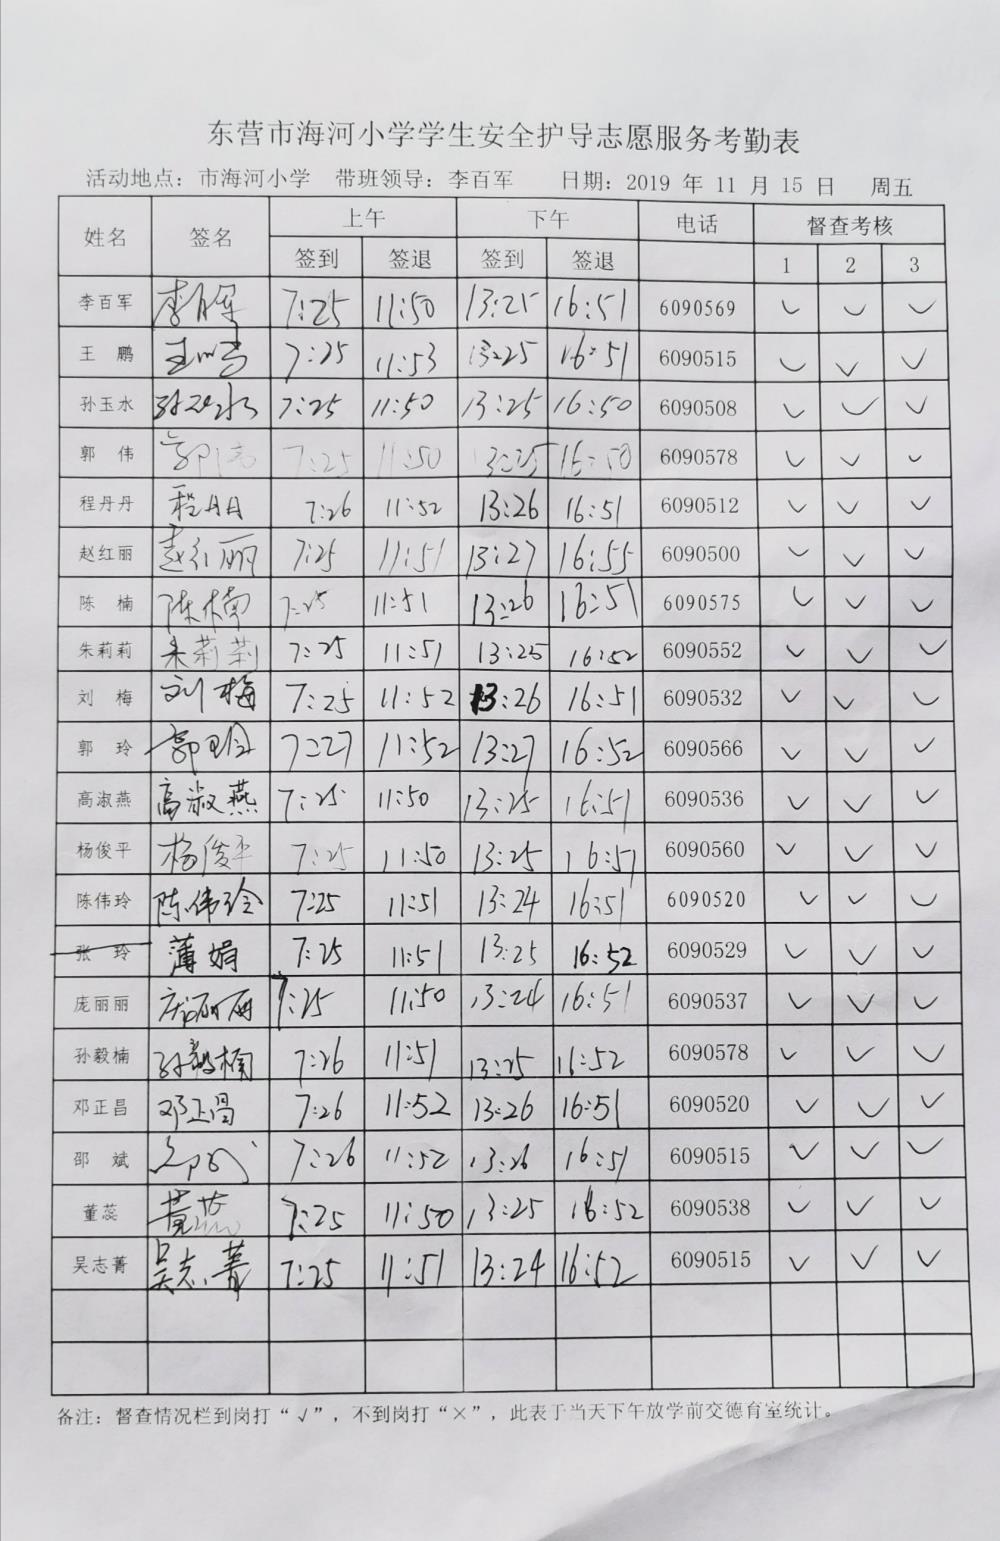 东营市海河小学学生安全护导志愿服务考勤表
活动地点：市海河小学 带班领导：李百军 日期：2019 年 11 月 15 日 周五
姓名 签名 上午 下午 电话 督查考核
签到 签退 签到 签退 1 2 3
李百军 李百军 7:25 11:50 13:25 16:51 6090569 ✓ ✓ ✓
王 鹏 王鹏 7:25 11:53 13:25 16:51 6090515 ✓ ✓ ✓
孙玉水 孙玉水 7:25 11:50 13:25 16:50 6090508 ✓ ✓ ✓
郭 伟 郭伟 7:25 11:50 13:25 16:50 6090578 ✓ ✓ ✓
程丹丹 程丹丹 7:26 11:52 13:26 16:51 6090512 ✓ ✓ ✓
赵红丽 赵红丽 7:25 11:51 13:27 16:55 6090500 ✓ ✓ ✓
陈 楠 陈楠 7:25 11:51 13:26 16:51 6090575 ✓ ✓ ✓
朱莉莉 朱莉莉 7:25 11:51 13:25 16:52 6090552 ✓ ✓ ✓
刘 梅 刘梅 7:25 11:52 13:26 16:51 6090532 ✓ ✓ ✓
郭 玲 郭玲 7:27 11:52 13:27 16:52 6090566 ✓ ✓ ✓
高淑燕 高淑燕 7:25 11:50 13:25 16:51 6090536 ✓ ✓ ✓
杨俊平 杨俊平 7:25 11:50 13:25 16:51 6090560 ✓ ✓ ✓
陈伟玲 陈伟玲 7:25 11:51 13:24 16:51 6090520 ✓ ✓ ✓
张 玲 薄娟 7:25 11:51 13:25 16:52 6090529 ✓ ✓ ✓
庞丽丽 庞丽丽 7:25 11:50 13:24 16:51 6090537 ✓ ✓ ✓
孙毅楠 孙毅楠 7:26 11:51 13:25 16:52 6090578 ✓ ✓ ✓
邓正昌 邓正昌 7:26 11:52 13:26 16:51 6090520 ✓ ✓ ✓
邵 斌 邵斌 7:26 11:52 13:26 16:51 6090515 ✓ ✓ ✓
董蕊 董蕊 7:25 11:50 13:25 16:52 6090538 ✓ ✓ ✓
吴志菁 吴志菁 7:25 11:51 13:24 16:52 6090515 ✓ ✓ ✓
备注：督查情况栏到岗打“√”，不到岗打“×”，此表于当天下午放学前交德育室统计。